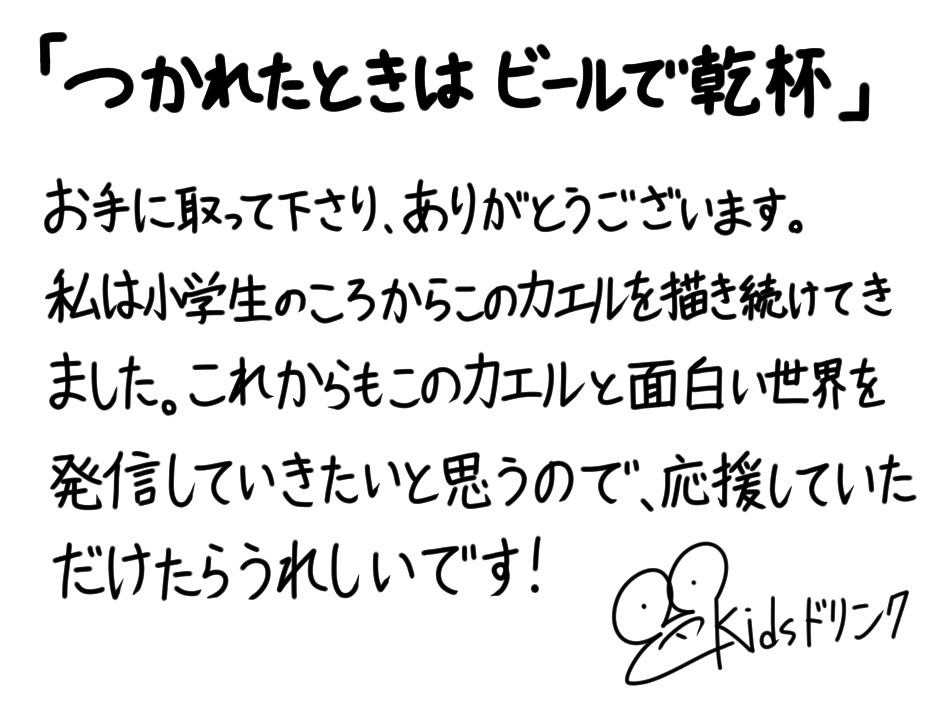 「つかれたときは ビールで乾杯」
お手に取って下さり、ありがとうございます。
私は小学生のころからこのカエルを描き続けてき
ました。これからもこのカエルと面白い世界を
発信していきたいと思うので、応援していた
だけたらうれしいです!
Kidsドリンク